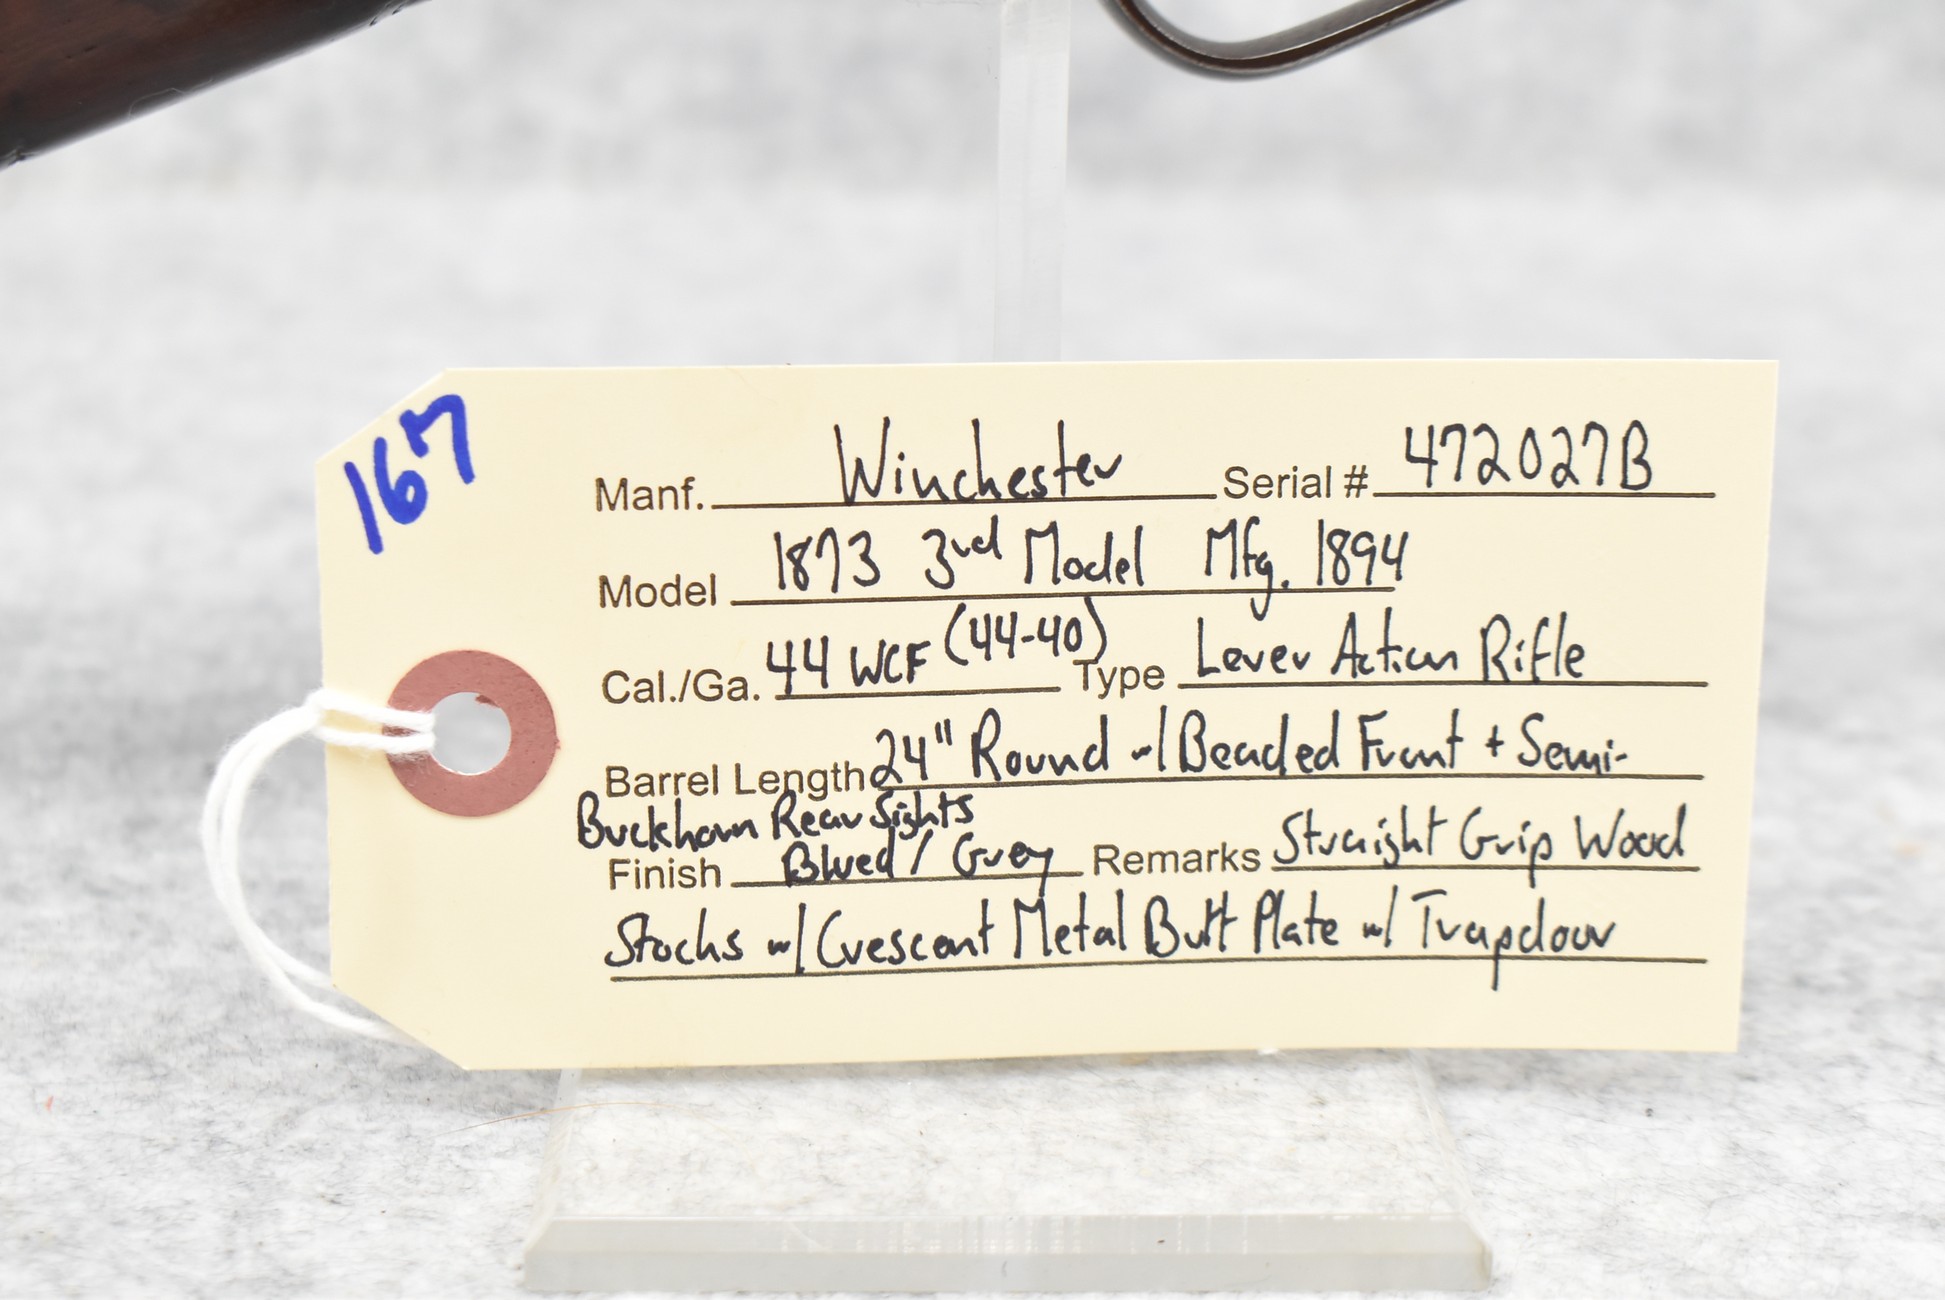 167
Manf. Winchester Serial # 472027B
Model 1873 3rd Model Mfg. 1894
Cal./Ga. 44 WCF (44-40) Type Lever Action Rifle
Barrel Length 24" Round w/ Beaded Front + Semi-
Buckhorn Rear Sights
Finish Blued / Grey Remarks Straight Grip Wood
Stocks w/ Crescent Metal Butt Plate w/ Trapdoor